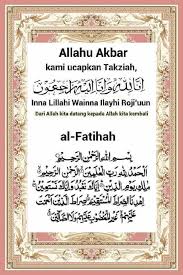 Allahu Akbar
kami ucapkan Takziah,
إنا لله وإنا إليه راجعون
Inna Lillahi Wainna Ilayhi Roji'uun
Dari Allah kita datang kepada Allah kita kembali
al-Fatihah
بسم الله الرحمن الرحيم
الحمد لله رب العالمين الرحمن الرحيم
مالك يوم الدين إياك نعبد وإياك نستعين
اهدنا الصراط المستقيم صراط الذين أنعمت
عليهم غير المغضوب عليهم ولا الضالين